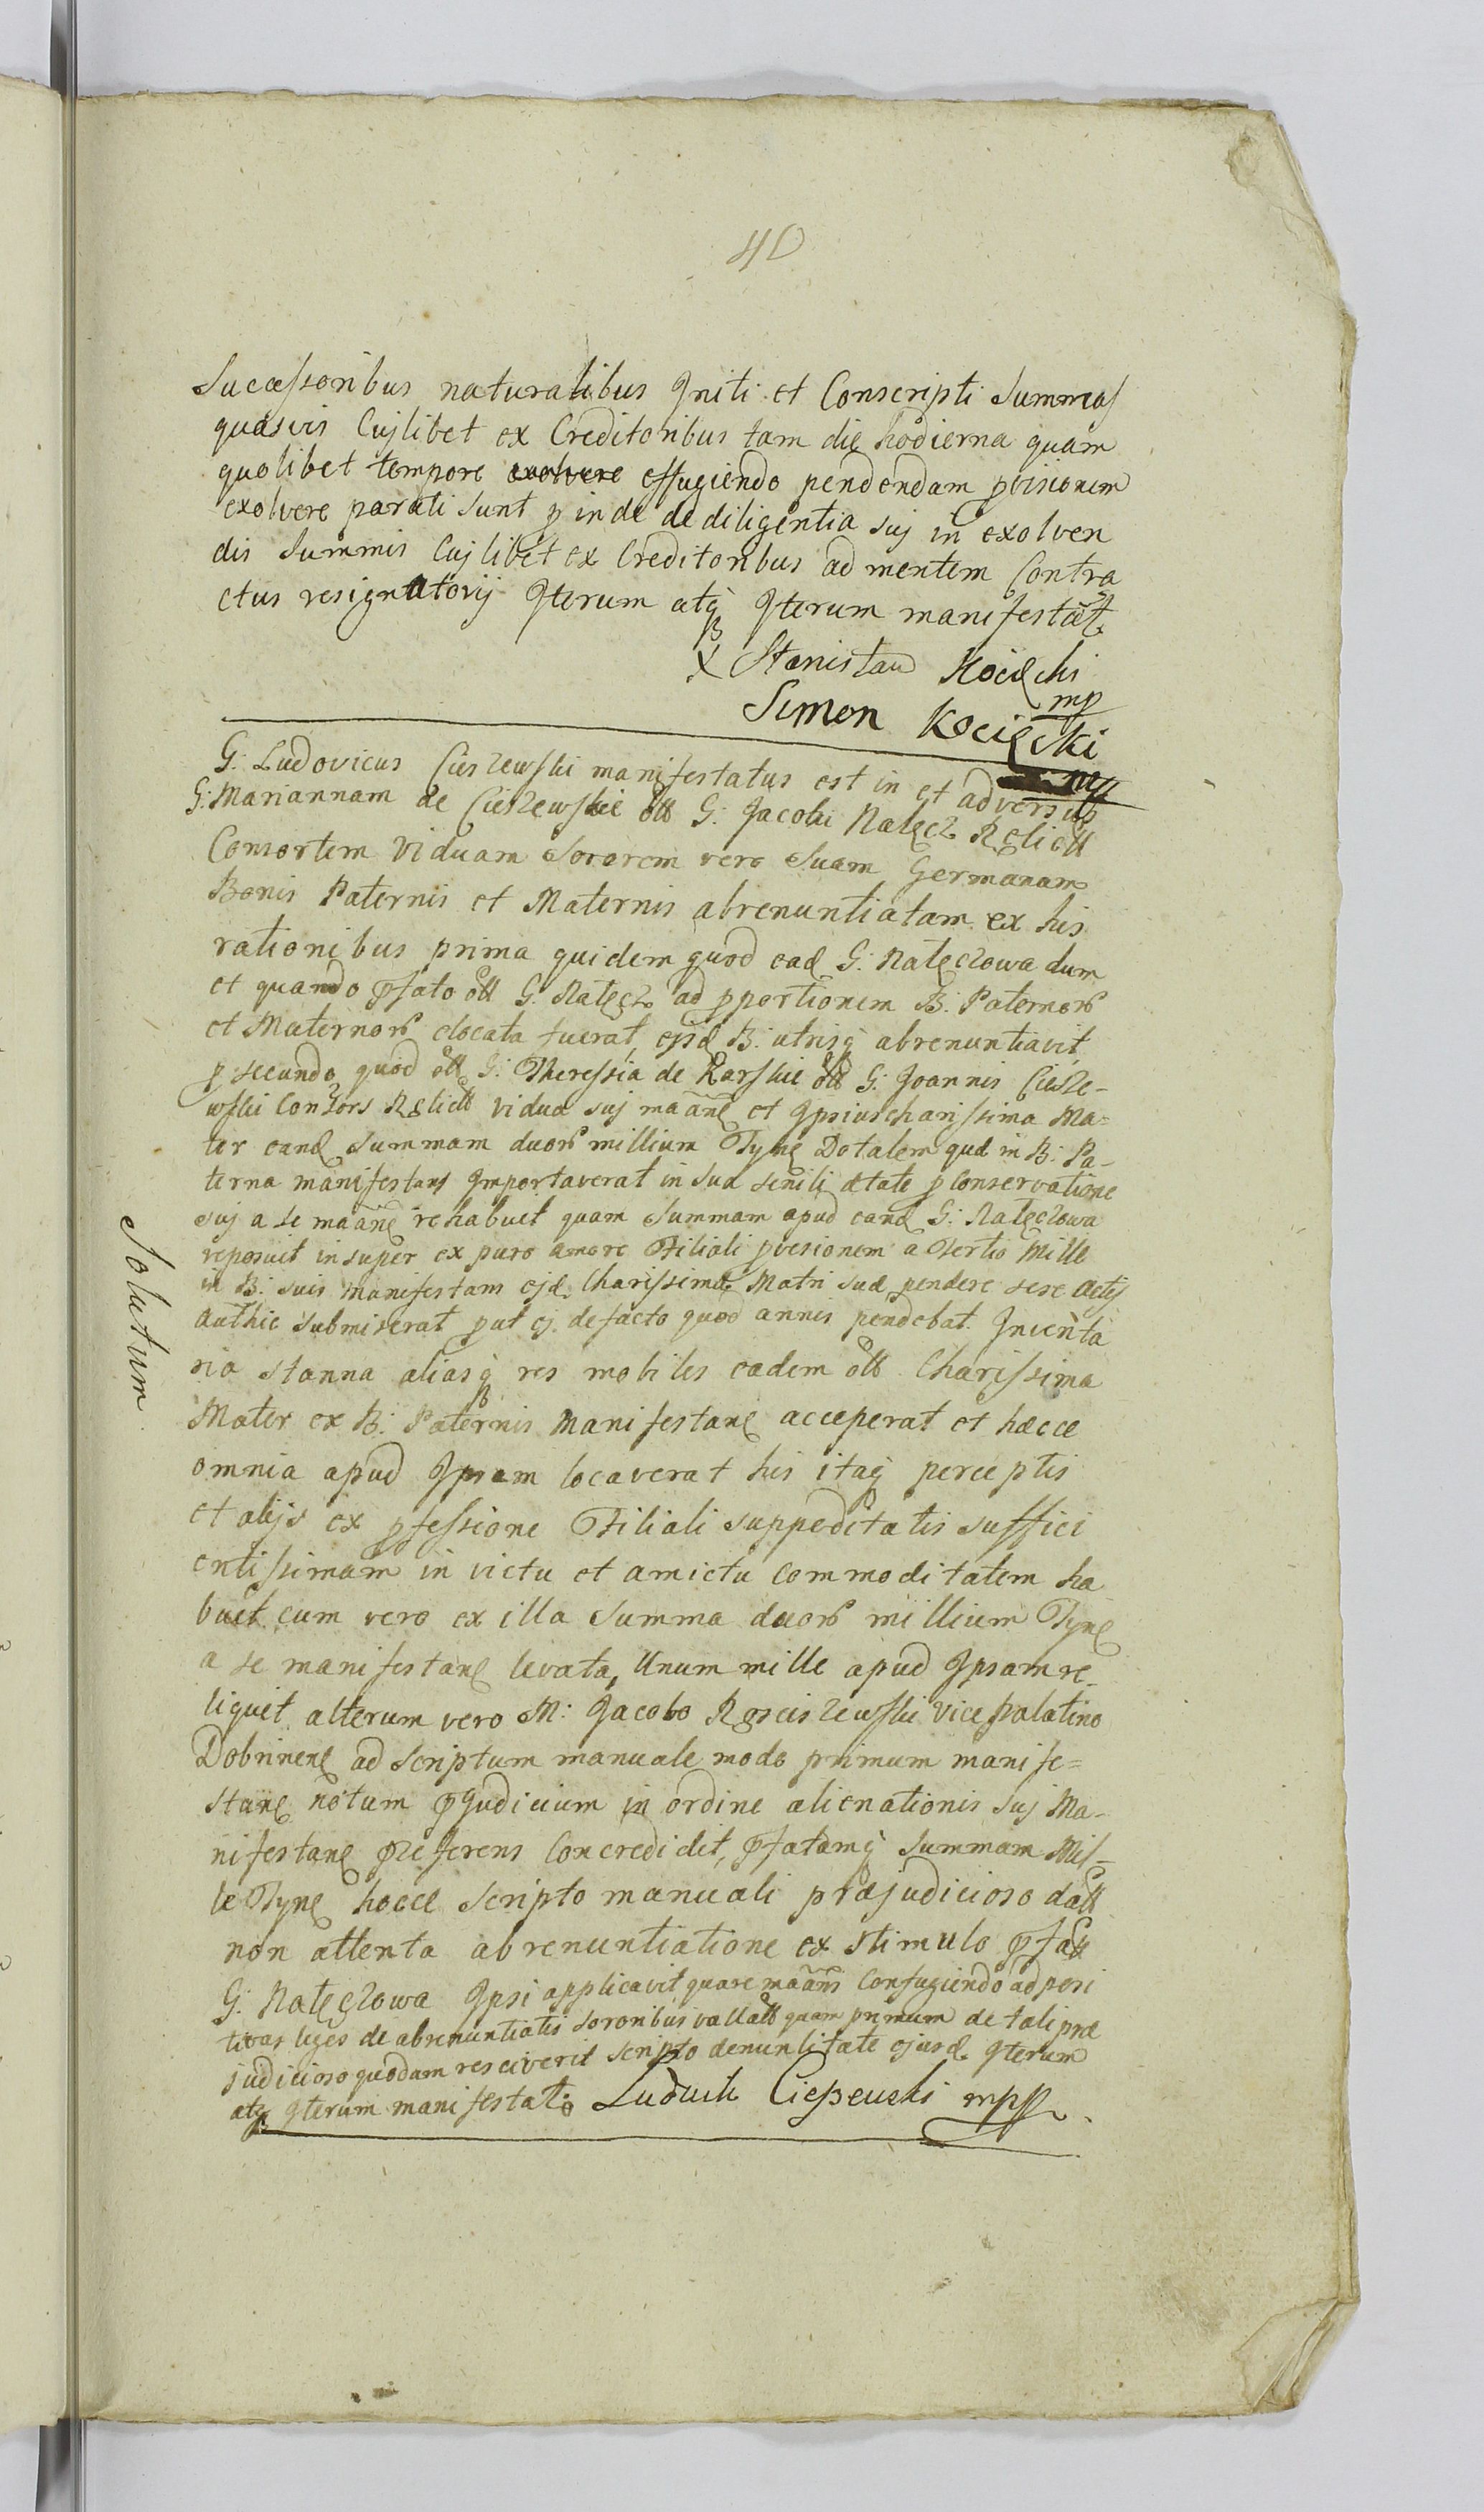 40
Successoribus naturalibus Initi et Conscripti Summas
quasvis Cujlibet ex Creditoribus tam die hodierna quam
quolibet tempore exolvere effugiendo pendendam pvisionem
exolvere parati sunt p inde de diligentia suj in exolven
dis Summis Cujlibet ex Creditoribus ad mentem Contra
ctus resignatorij Iterum atq Iterum manifestat.
X Stanisław Kocięcki
mp
Simon Kocięcki
mp
G: Ludovicus Cieszewski manifestatus est in et adversus
G: Mariannam de Cieszewskie olt G: Jacobi Nałęcz Relict
Consortem Viduam Sororem vero Suam Germanam
Bonis Paternis et Maternis abrenuntiatam ex his
rationibus prima quidem quod ead G: Nałęczowa dum
et quando pfato olt G: Nałęcz ad pportionem B: Paternor
et Maternor elocata fuerat, ejsd B: utrisq abrenuntiavit
p secundo quod olt G: Theressia de Karskie olt G: Joannis Ciesze-
wski Consors Relict Vidua suj maane et Ipsius charissima Ma-
ter eand Summam duor millium Tyne Dotalem qua in B: Pa-
terna manifestans Importaverat in sua senili ætate p Conservatione
suj a se maane rehabuit quam Summam apud eand G: Nałęczowa
reposuit insuper ex puro amore Filiali pvisionem a Tertio Mille
in B: suis manifestam ejd. Charissimæ Matri suæ pendere sese actis
authic submiserat put ej. de facto quod annis pendebat. Inventa
ria stanna aliasq res mobiles eadem olt Charissima
Mater ex B: Paternis Manifestane acceperat et hæcce
omnia apud Ipsam locaverat his itaq perceptis
et alijs ex pfessione Filiali suppeditatis suffici
entissimam in victu et amictu commoditatem ha
buit cum vero ex illa Summa duor millium Tyne
a se manifestane levata, Unum mille apud Ipsam re-
liquit alterum vero M: Jacobo Rosciszewski Vice Palatino
Dobrinen ad Scriptum manuale modo primum manife=
stane notum pjudicium in ordine alienationis suj Ma-
nifestane pzeferens Concredidit, pfatamq Summam Mil-
le Tyne hocce Scripto manuali præjudicioso datt
non attenta abrenuntiatione ex stimulo pfatt
G: Nałęczowa Ipsi applicavit quare maans Confugiendo ad posi
tivas leges de abrenuntiatis sororibus vallatt quam primum de tali præ
judicioso quodam resciverit scripto de nunlitate ejusd. Iterum
atq Iterum manifestat. Ludwik Cieszewski mpp
Solutum